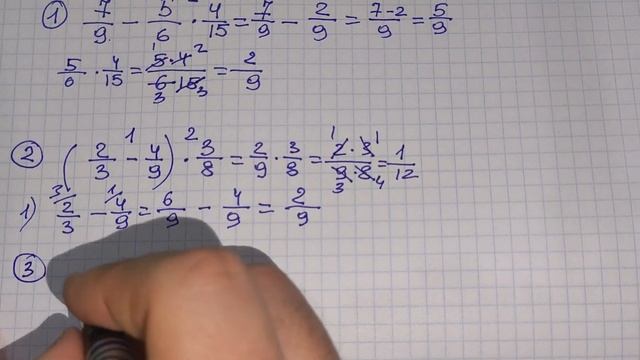 ① 7/9 − 5/6 · 4/15 = 7/9 − 2/9 = 7−2/9 = 5/9
5/6 · 4/15 = 5·4/6·15 = 2/9
② (2/3 − 4/9) · 3/8 = 2/9 · 3/8 = 2·3/9·8 = 1/12
1) 2/3 − 4/9 = 6/9 − 4/9 = 2/9
③